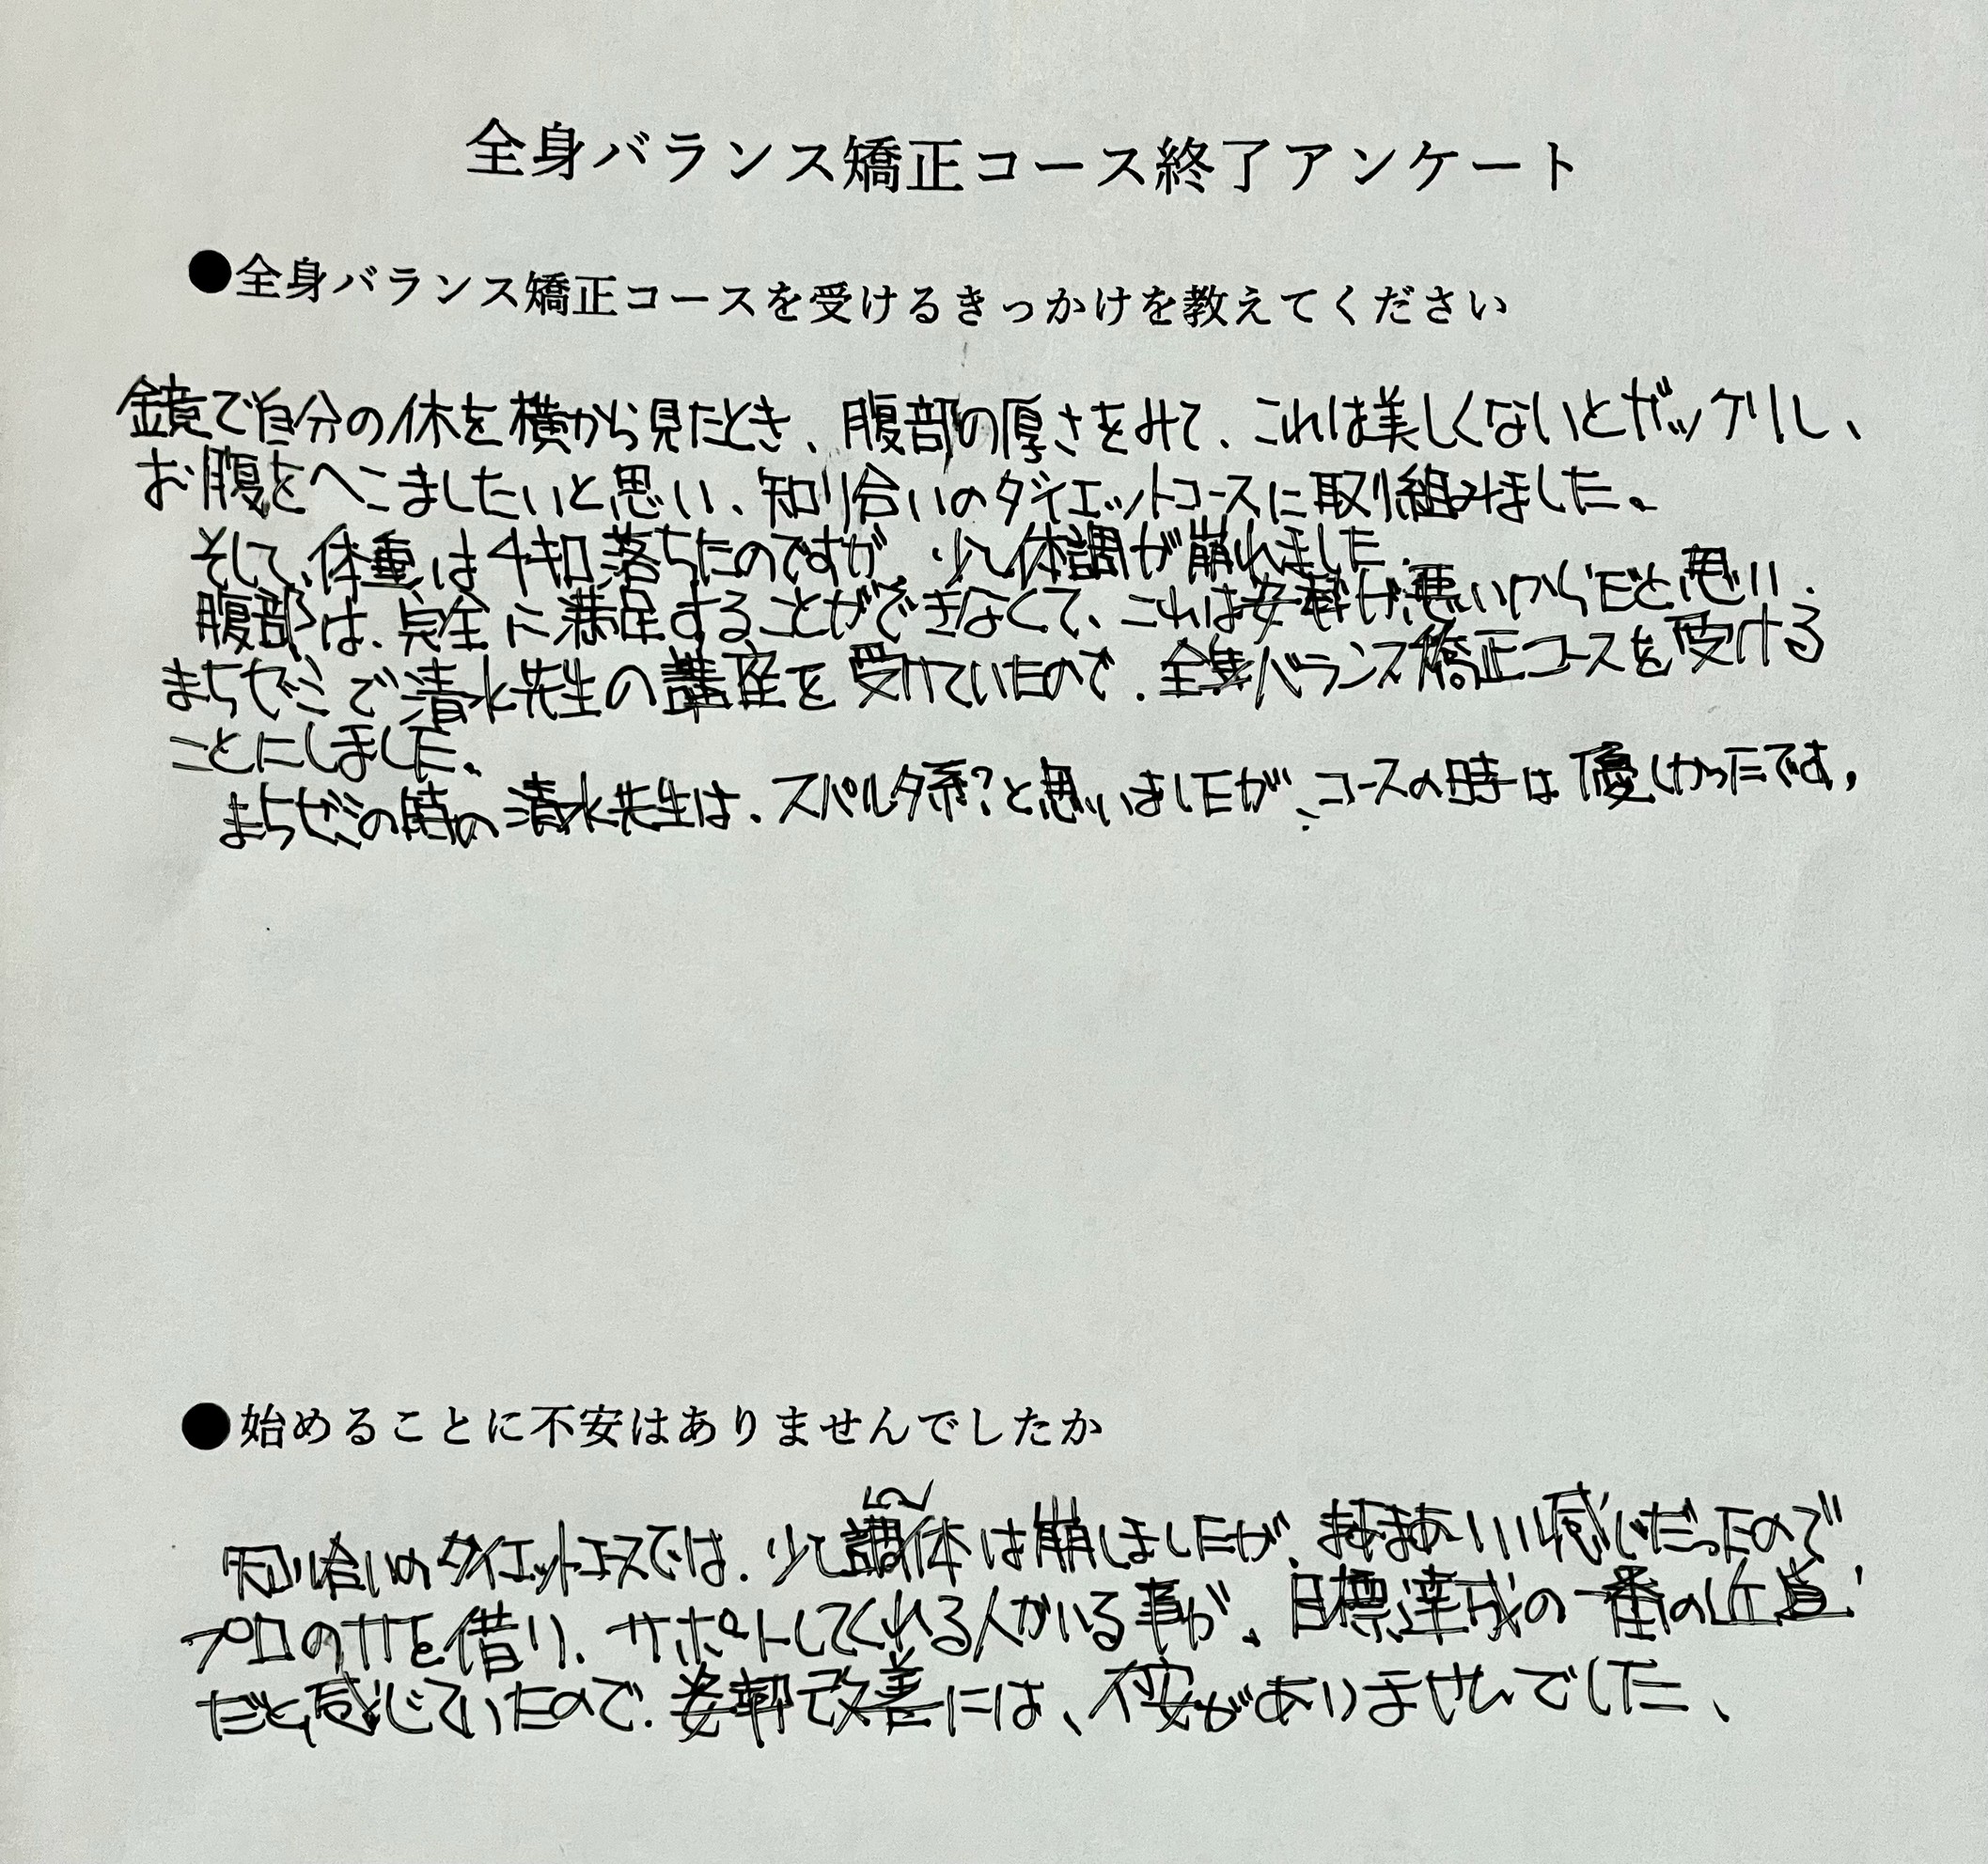 全身バランス矯正コース終了アンケート
●全身バランス矯正コースを受けるきっかけを教えてください
鏡で自分の体を横から見たとき、腹部の厚さをみて、これは美しくないとガックリし、
お腹をへこましたいと思い、知り合いのダイエットコースに取り組みました。
そして、体重は4キロ落ちたのですが、少し体調が崩れました。
腹部は、完全に満足することができなくて、これは姿勢が悪いからだと思い、
まちゼミで清水先生の講座を受けていたので、全身バランス矯正コースを受ける
ことにしました。
まちゼミの時の清水先生は、スパルタ系?と思いましたが、コースの時は優しかったです。
●始めることに不安はありませんでしたか
知り合いのダイエットコースでは、少し調体は崩しましたが、まあまあいい感じだったので
プロの力を借り、サポートしてくれる人がいる事が、目標達成の一番の近道
だと感じていたので、姿勢改善には、不安がありませんでした、